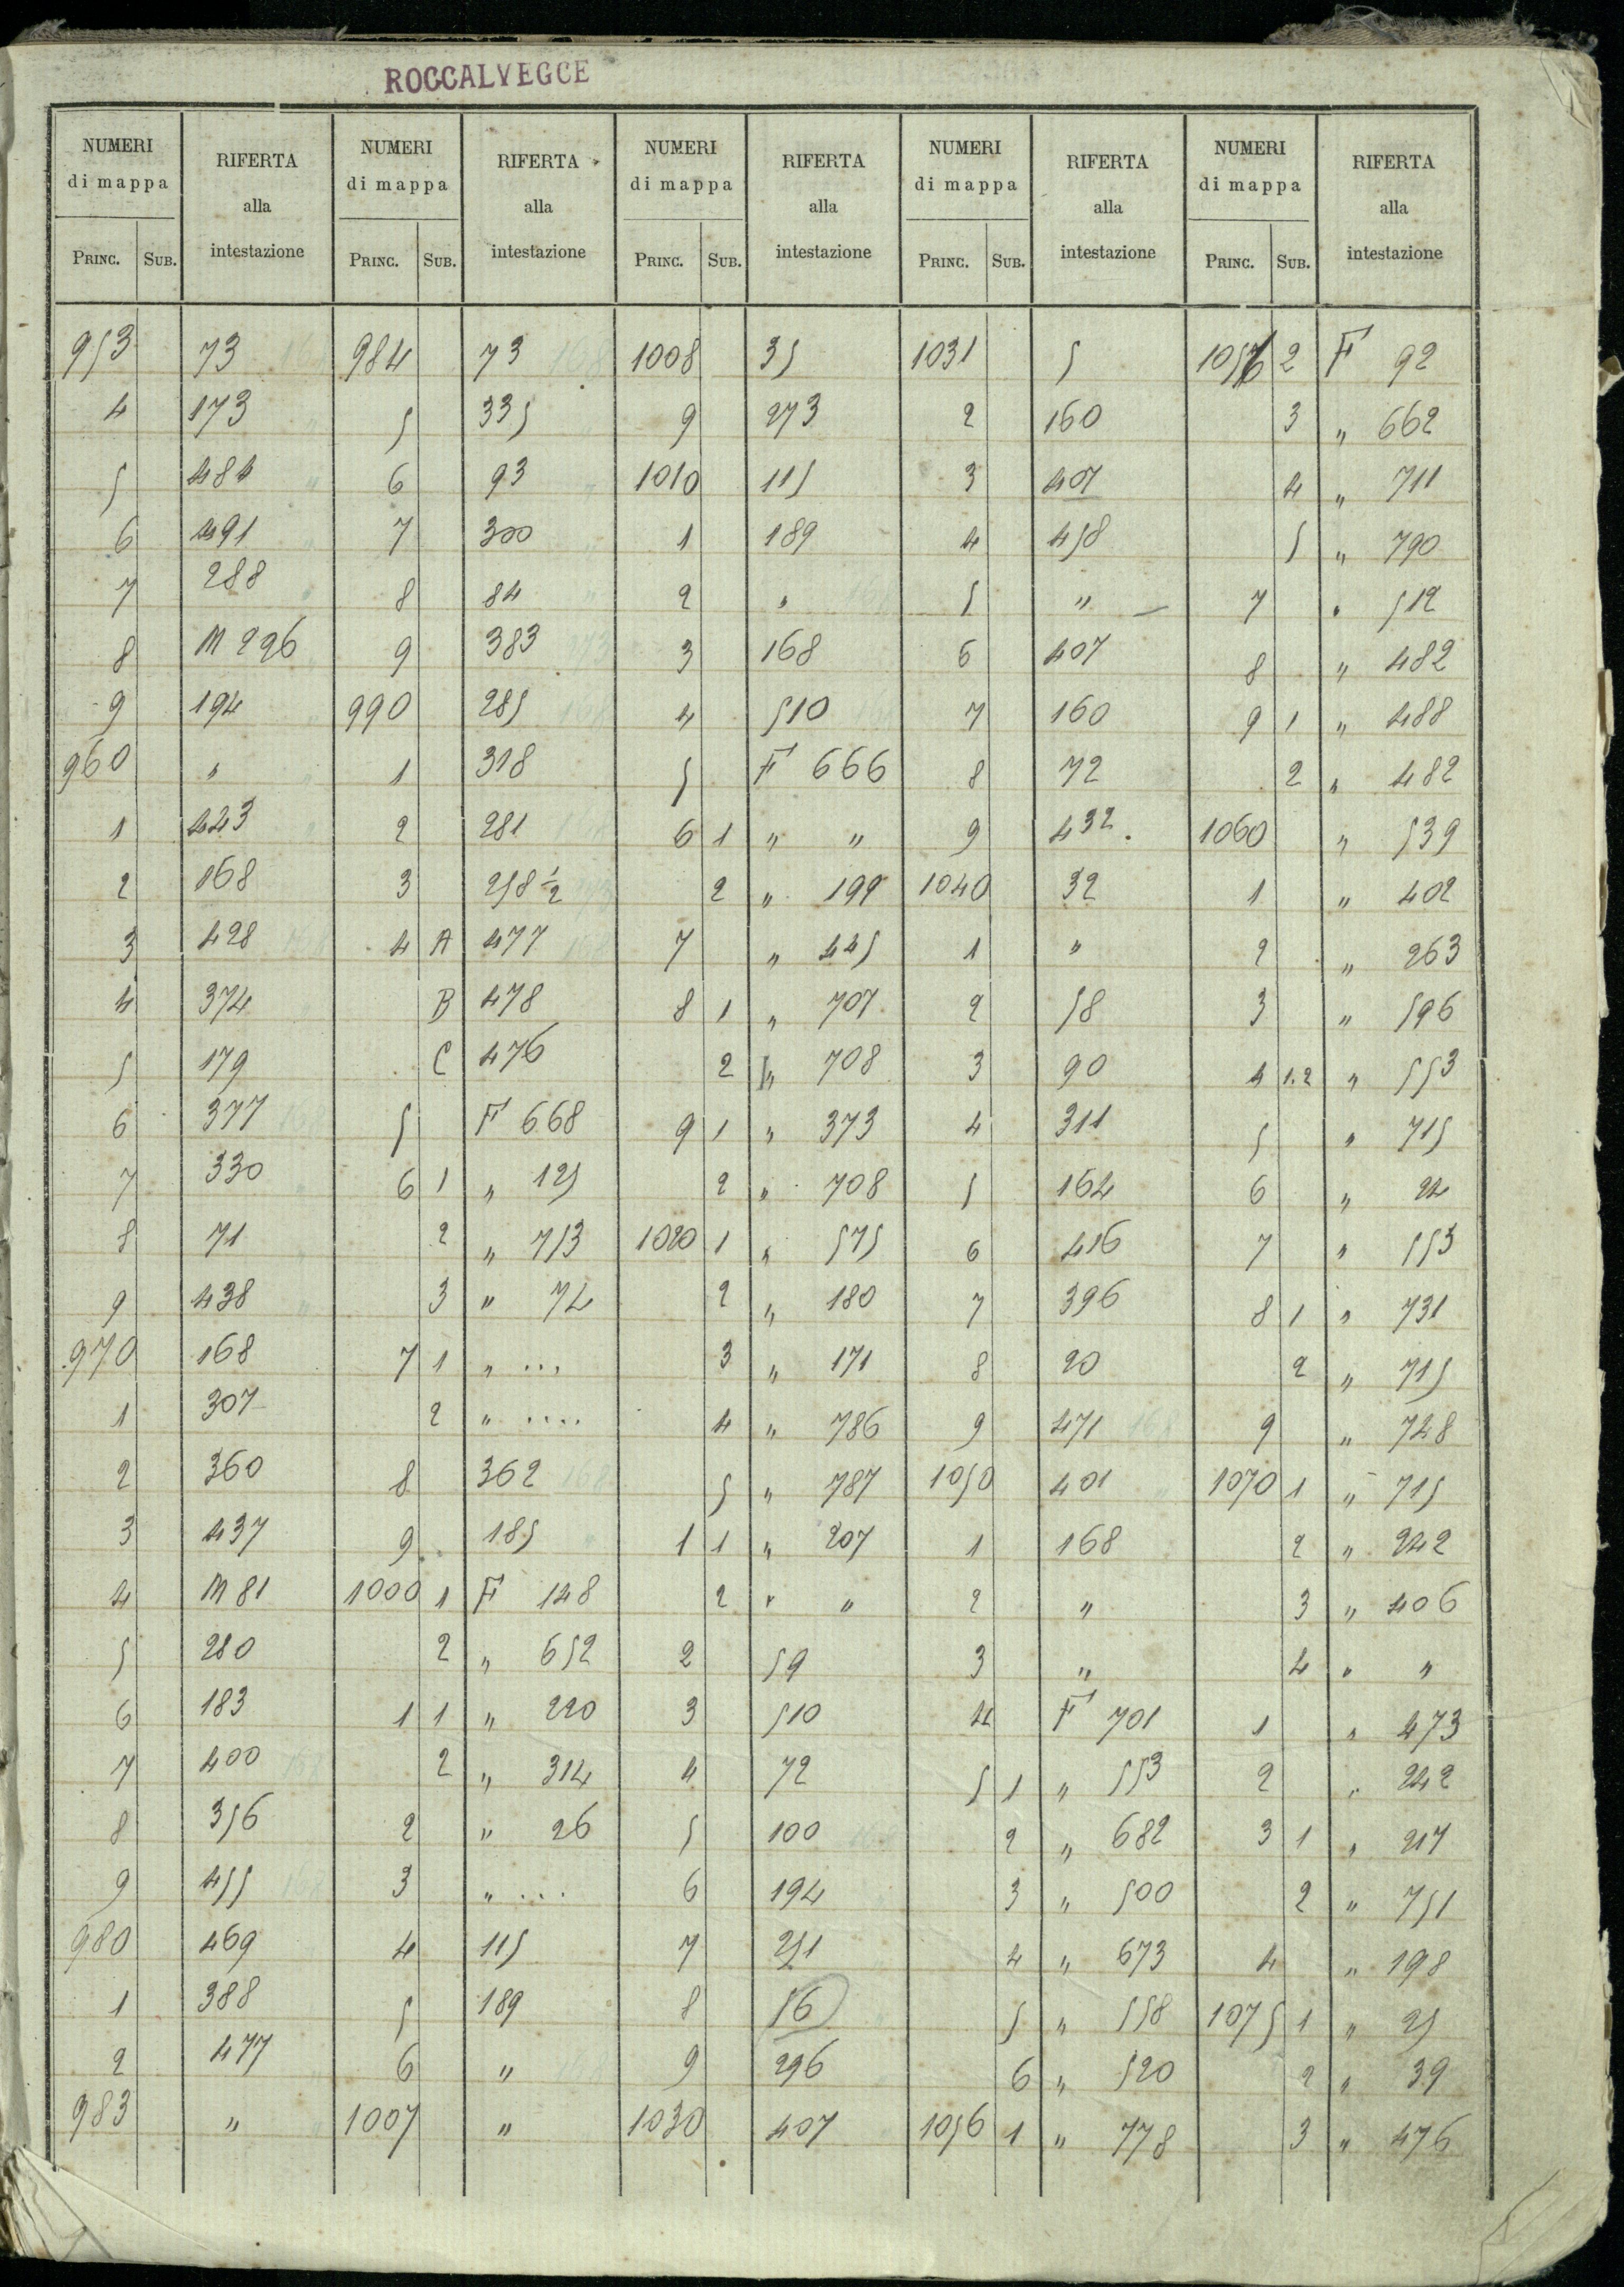 ROCCALVEGCE
NUMERI di mappa | RIFERTA alla intestazione | NUMERI di mappa | RIFERTA alla intestazione | NUMERI di mappa | RIFERTA alla intestazione | NUMERI di mappa | RIFERTA alla intestazione | NUMERI di mappa | RIFERTA alla intestazione
PRINC. | SUB. | PRINC. | SUB. | PRINC. | SUB. | PRINC. | SUB. | PRINC. | SUB.
953 | 73 | 984 | 73 | 1008 | 35 | 1031 | 5 | 1056 2 | F 92
4 | 173 | 5 | 335 | 9 | 273 | 2 | 160 | 3 | " 662
5 | 484 | 6 | 93 | 1010 | 115 | 3 | 407 | 4 | " 711
6 | 491 | 7 | 300 | 1 | 189 | 4 | 458 | 5 | " 790
7 | 288 | 8 | 84 | 2 | " | 5 | " — | 7 | " 512
8 | M 226 | 9 | 383 | 3 | 168 | 6 | 407 | 8 | " 482
9 | 194 | 990 | 285 | 4 | 510 | 7 | 160 | 9 1 | " 488
960 | " | 1 | 318 | 5 | F 666 | 8 | 72 | 2 | " 482
1 | 443 | 2 | 281 | 6 1 | " " | 9 | 432. | 1060 | " 539
2 | 168 | 3 | 258 1/2 | 2 | " 199 | 1040 | 32 | 1 | " 402
3 | 428 | 4 A | 477 | 7 | " 445 | 1 | " | 2 | " 263
4 | 374 | B | 478 | 8 1 | " 707 | 2 | 58 | 3 | " 596
5 | 179 | C | 476 | 2 | " 708 | 3 | 90 | 4 1.2 | " 553
6 | 377 | 5 | F 668 | 9 1 | " 373 | 4 | 311 | 5 | " 715
7 | 330 | 6 1 | " 125 | 2 | " 708 | 5 | 164 | 6 | " 24
8 | 71 | 2 | " 753 | 1020 1 | " 575 | 6 | 416 | 7 | " 553
9 | 438 | 3 | " 74 | 2 | " 180 | 7 | 396 | 8 1 | " 731
970 | 168 | 7 1 | " ... | 3 | " 171 | 8 | 20 | 2 | " 715
1 | 307 | 2 | " .... | 4 | " 786 | 9 | 471 | 9 | " 728
2 | 360 | 8 | 362 | 5 | " 787 | 1050 | 401 | 1070 1 | " 715
3 | 437 | 9 | 185 | 1 1 | " 207 | 1 | 168 | 2 | " 242
4 | M 81 | 1000 1 | F 148 | 2 | " " | 2 | " | 3 | " 406
5 | 280 | 2 | " 652 | 2 | 59 | 3 | " | 4 | " "
6 | 183 | 1 1 | " 220 | 3 | 510 | 4 | F 701 | 1 | " 473
7 | 400 | 2 | " 314 | 4 | 72 | 5 1 | " 553 | 2 | " 242
8 | 356 | 2 | " 26 | 5 | 100 | 2 | " 682 | 3 1 | " 217
9 | 455 | 3 | " ... | 6 | 194 | 3 | " 500 | 2 | " 751
980 | 469 | 4 | 115 | 7 | 251 | 4 | " 673 | 4 | " 198
1 | 388 | 5 | 189 | 8 | 56 | 5 | " 558 | 1075 1 | " 25
2 | 477 | 6 | " | 9 | 296 | 6 | " 520 | 2 | " 39
983 | " | 1007 | " | 1030 | 407 | 1056 1 | " 778 | 3 | " 476